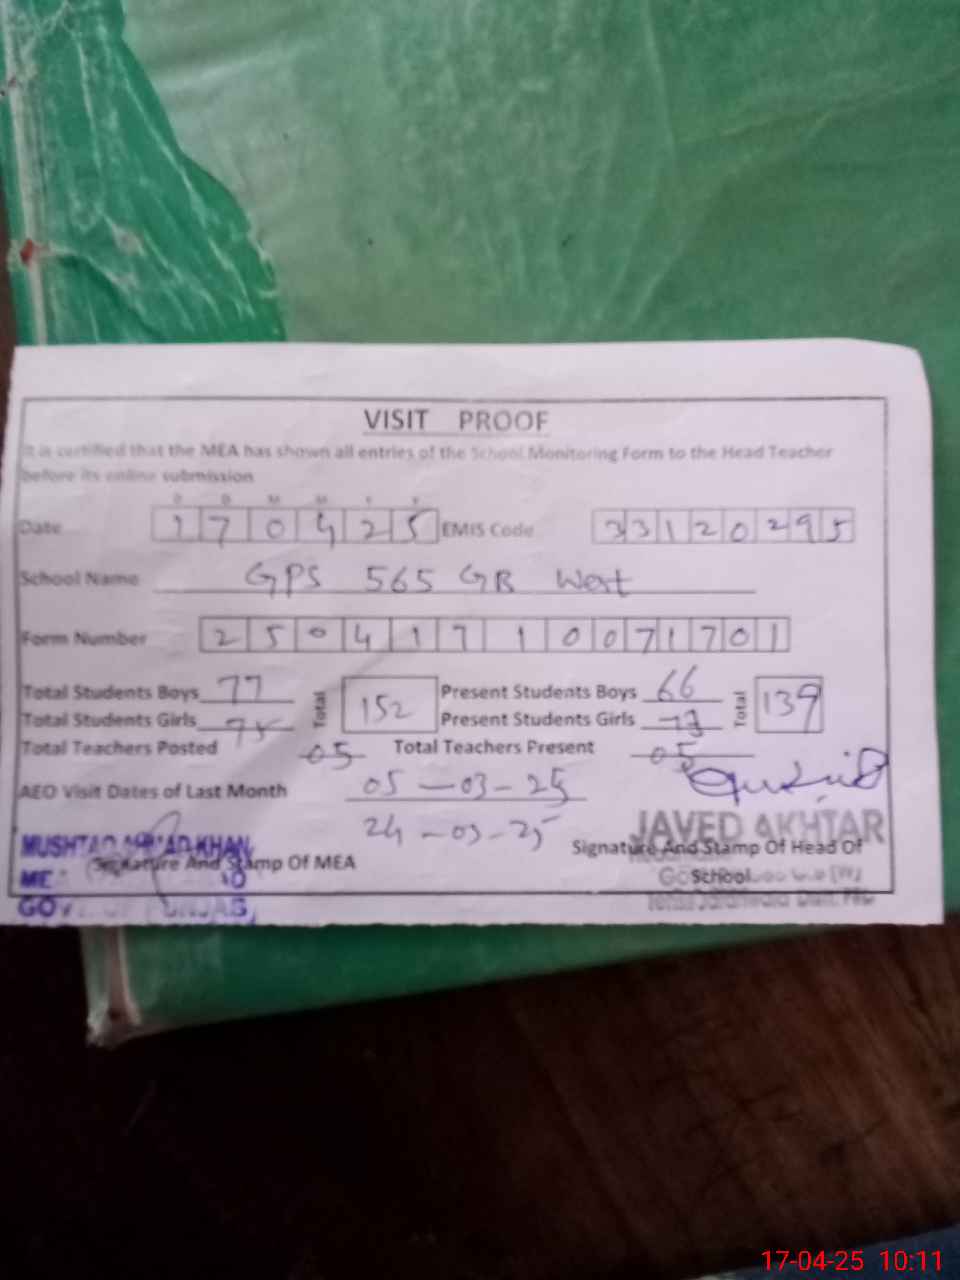 VISIT PROOF
It is certified that the MEA has shown all entries of the School Monitoring Form to the Head Teacher
before its online submission
D D M M Y Y
Date 170425 EMIS Code 33120295
School Name GPS 565 GB West
Form Number 25041710071701
Total Students Boys 77 Total 152 Present Students Boys 66 Total 139
Total Students Girls 75 Present Students Girls 73
Total Teachers Posted 05 Total Teachers Present 05
AEO Visit Dates of Last Month 05-03-25
24-03-25
JAVED AKHTAR
MUSHTAQ AHMAD KHAN
Signature And Stamp Of MEA
Signature And Stamp Of Head Of
School
GOVT. OF PUNJAB
17-04-25 10:11